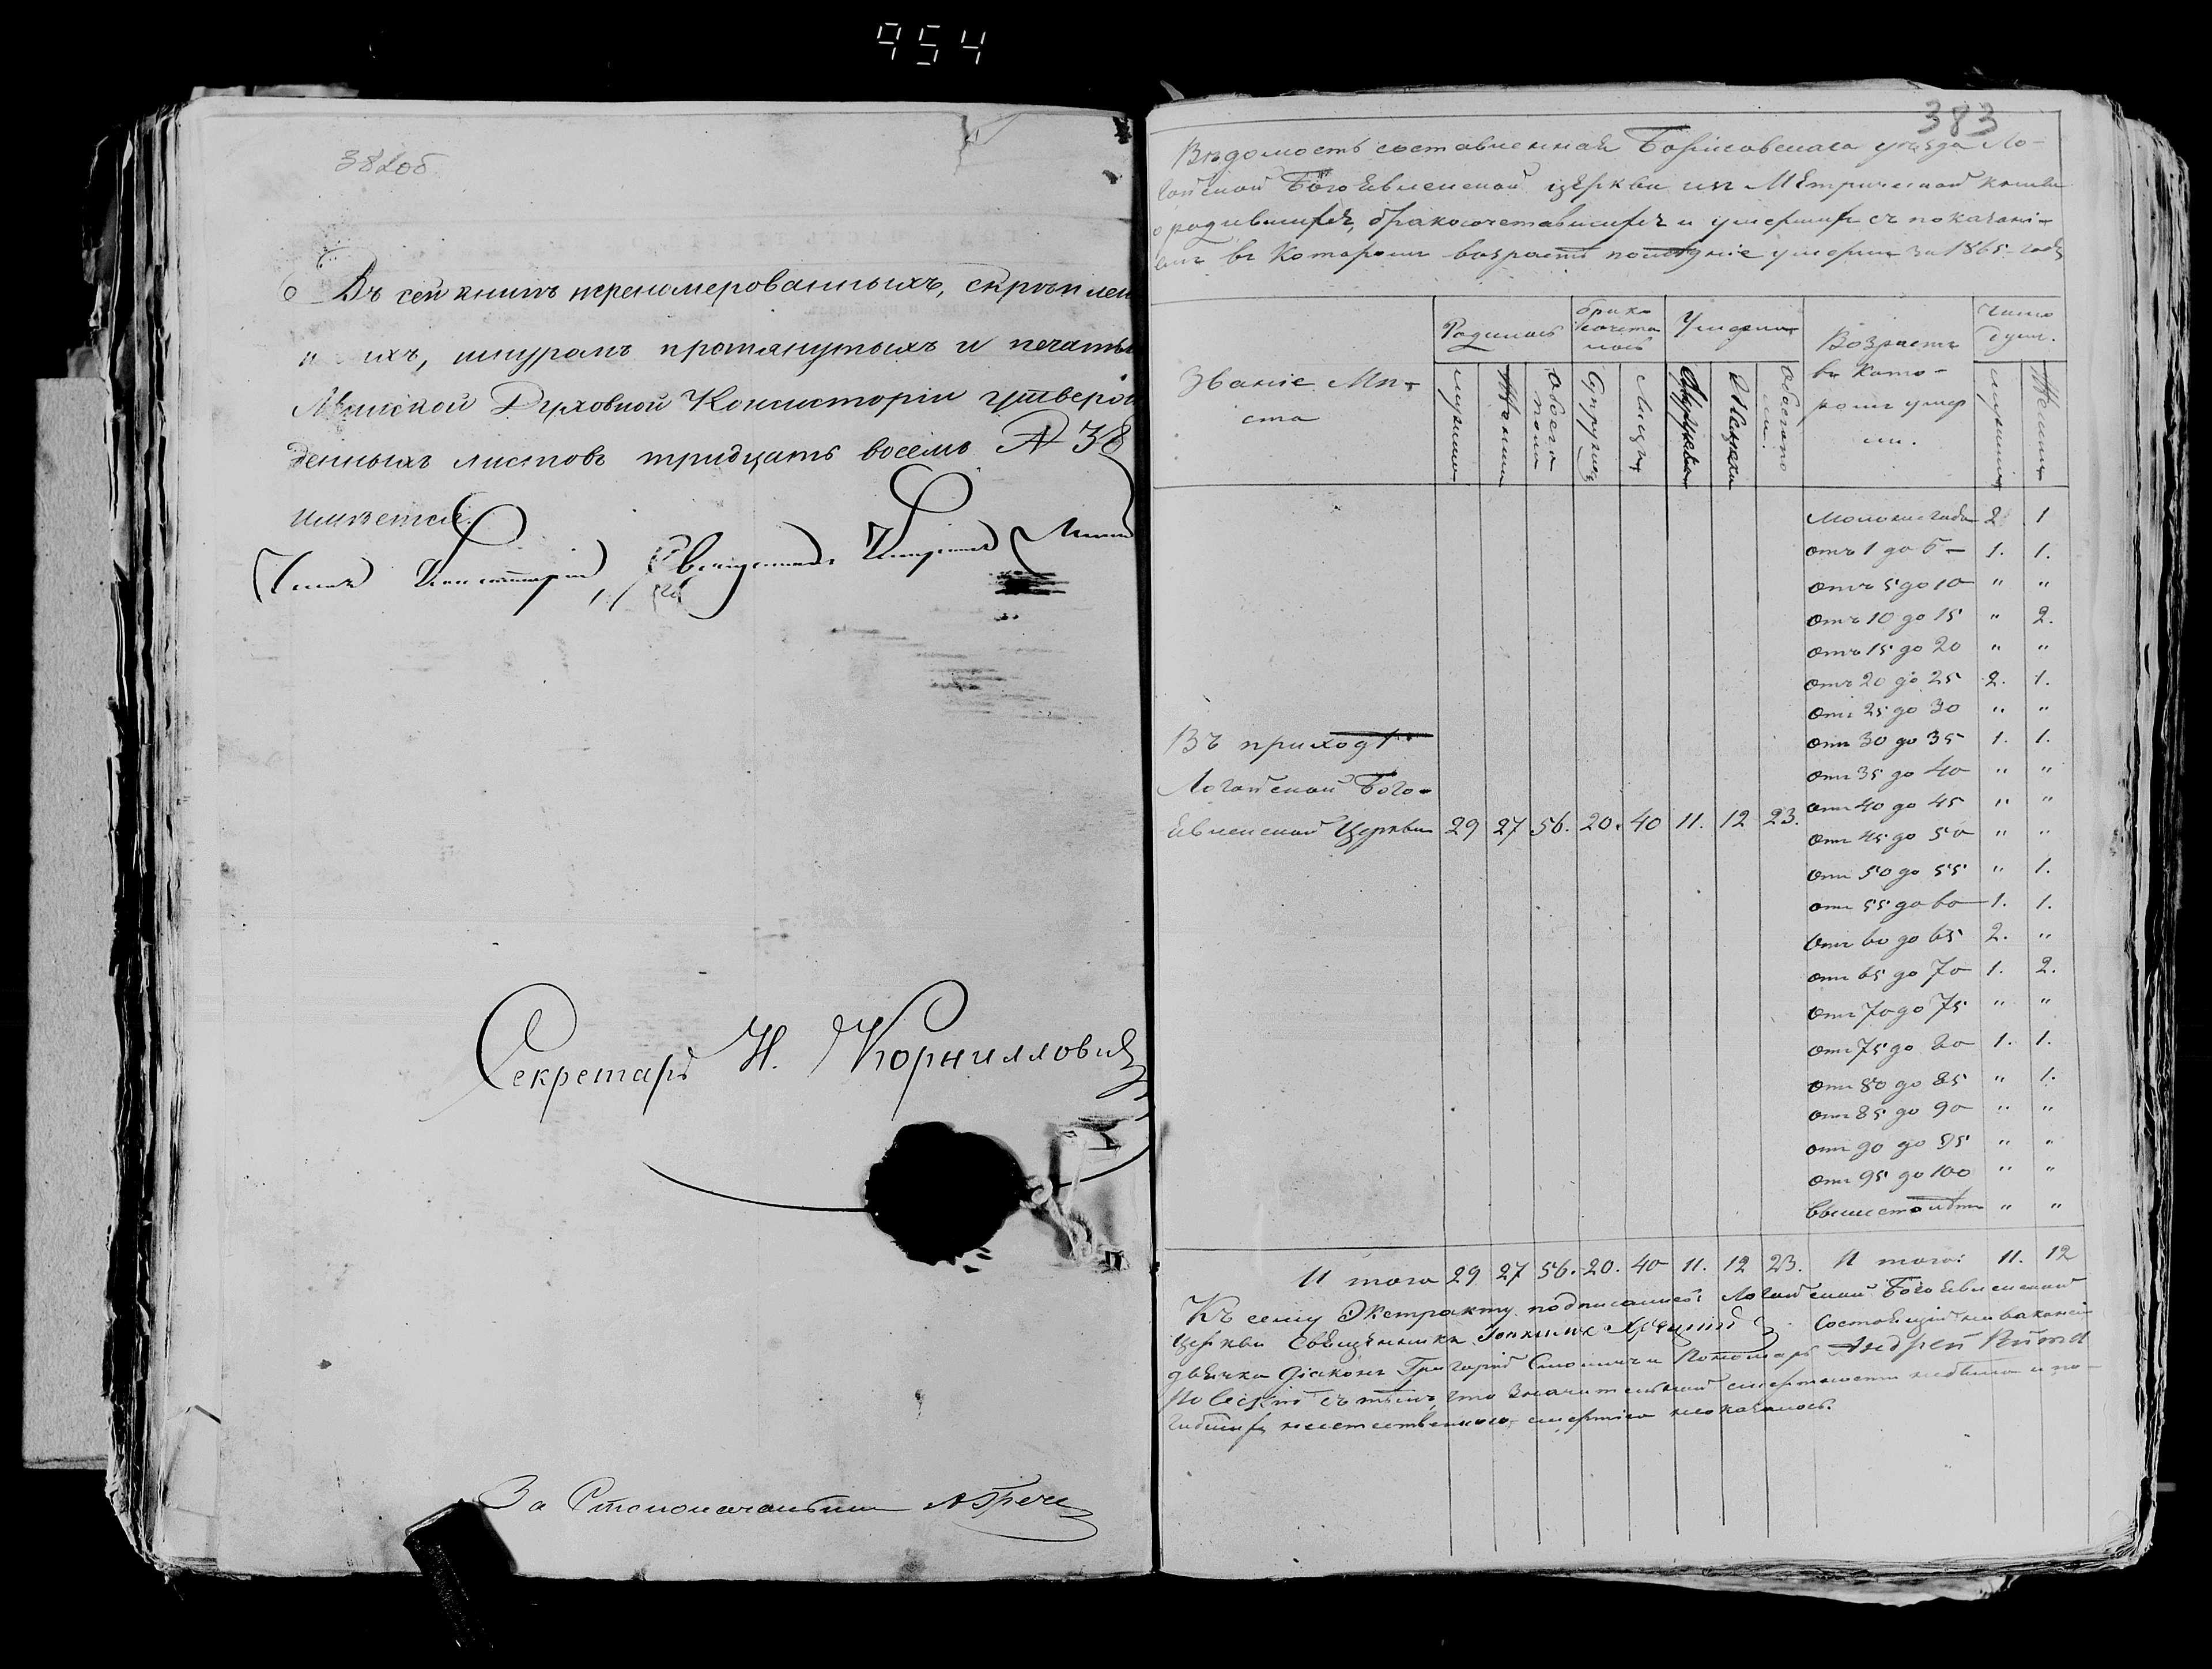 954
382об
Въ сей книгѣ перенумерованныхъ, скрѣплен
ихъ, шнуромъ протянутыхъ и печатью
Минской Духовной Консисторіи утверж
денныхъ листовъ тридцать восемь № 38
имѣется.
Членъ Консисторіи, Священникъ
Секретарь Н. Корнилловичъ
За Столоначальника
383
Вѣдомость составленная Борисовскаго уѣзда Ло-
гойской Богоявленской церкви изъ Метрической книги
о родившихся, бракосочетавшихся и умершихъ съ показані-
емъ въ которомъ возрастѣ послѣдніе умерли за 1865 годъ
Званіе Мѣ-
ста
Родилось
Брако
сочета
лось
Умерло
Возрастъ
въ кото-
ромъ умер
ли.
Число
душъ.
мужска
Женска
Обоего
пола
Супруж
Лицъ
Мужска
Женска
Обоего по
ла.
мужска
Женска
Моложе года 2 1
отъ 1 до 5 — 1. 1.
отъ 5 до 10 " "
отъ 10 до 15 " 2.
отъ 15 до 20 " "
отъ 20 до 25 2. 1.
отъ 25 до 30 " "
отъ 30 до 35 1. 1.
отъ 35 до 40 " "
отъ 40 до 45 " "
отъ 45 до 50 " "
отъ 50 до 55 " 1.
отъ 55 до 60 1. 1.
отъ 60 до 65 2. "
отъ 65 до 70 1. 2.
отъ 70 до 75 " "
отъ 75 до 80 1. 1.
отъ 80 до 85 " 1.
отъ 85 до 90 " "
отъ 90 до 95 " "
отъ 95 до 100 " "
Выше ста лѣтъ " "
Въ приходѣ
Логойской Бого-
явленской Церкви 29 27 56. 20. 40 11. 12 23.
И того 29 27 56. 20. 40 11. 12 23. И того: 11. 12
Къ сему Экстракту подписались: Логойской Богоявленской
Церкви Священникъ Іоакимъ Хруцкій Состоящій на вакансіи
дьячка діаконъ Григорій и Пономарь Андрей
съ тѣмъ, что значительной смертности не было и по-
гибшихъ неестественною смертію не оказалось.